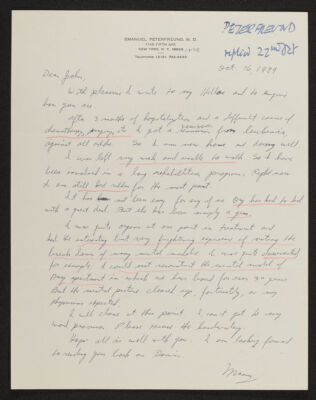 EMANUEL PETERFREUND, M. D.
1148 FIFTH AVE.
NEW YORK, N. Y. 10028
TELEPHONE (212)
PETERFREUND
replied 22nd Oct
Oct 16, 1989
Dear John,
With pleasure I write to say Hello and to inquire
how you are.
After 3 months of hospitalization and a difficult course of
chemotherapy, surgery, etc I got a remission from leukemia,
against all odds. So I am now home and doing well
I was left very weak and unable to walk. So I have
been involved in a long rehabilitation program. Right now
I am still bed ridden for the most part.
It has not been easy for any of us has had to deal
with a great deal. But she has been simply a gem.
I was quite at one point in treatment and
had the interesting but very frightening experience of noting the
breakdown of many mental models. I was quite disoriented,
for example, I could not reconstruct the mental model of
my apartment in which we have lived for over 30 years
But the mental picture cleared up, fortunately, as my
physicians expected.
I will close at this point. I can't get to my
word processor. Please excuse the handwriting.
Hope all is well with you. I am looking forward
to reading your book on Darwin.
Manny